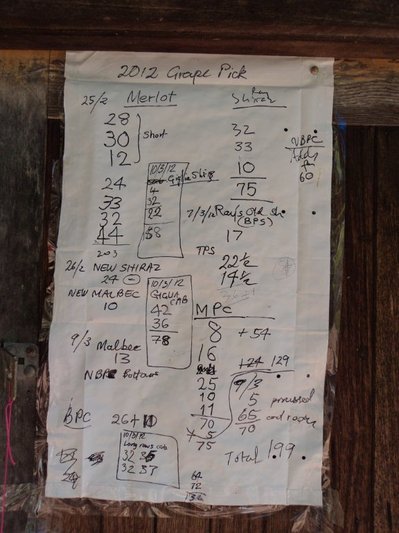 2012 Grape Pick
25/2 Merlot
28
30 Short
12
24
33
32
44
203
26/2 NEW SHIRAZ
24
NEW MALBEC
10
9/3 Malbec
13
BPC 26+10
10/3/12
4
32
22
58
10/3/12
GIGUA
CAB
42
36
78
10/3/12
Long rows cab
32 35
32 37
Shiraz
32
33
10
75
7/3/12 Ray's Old
(BPS)
17
TPS
22½
14½
MPC
8 +54
16
+24 129
25
10
11
70
+5
75
9/3
5 processed
65
70
Total 199
64
72
136
NBPC
60